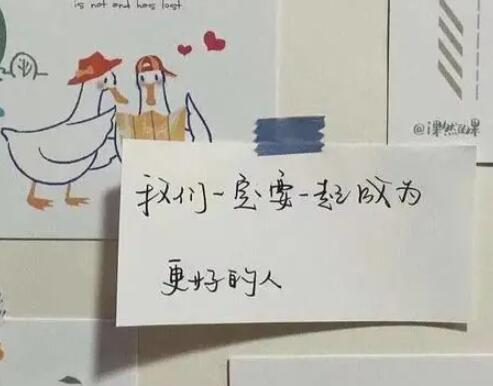 is not and has lost.
@课然的课
我们一定要一起成为
更好的人